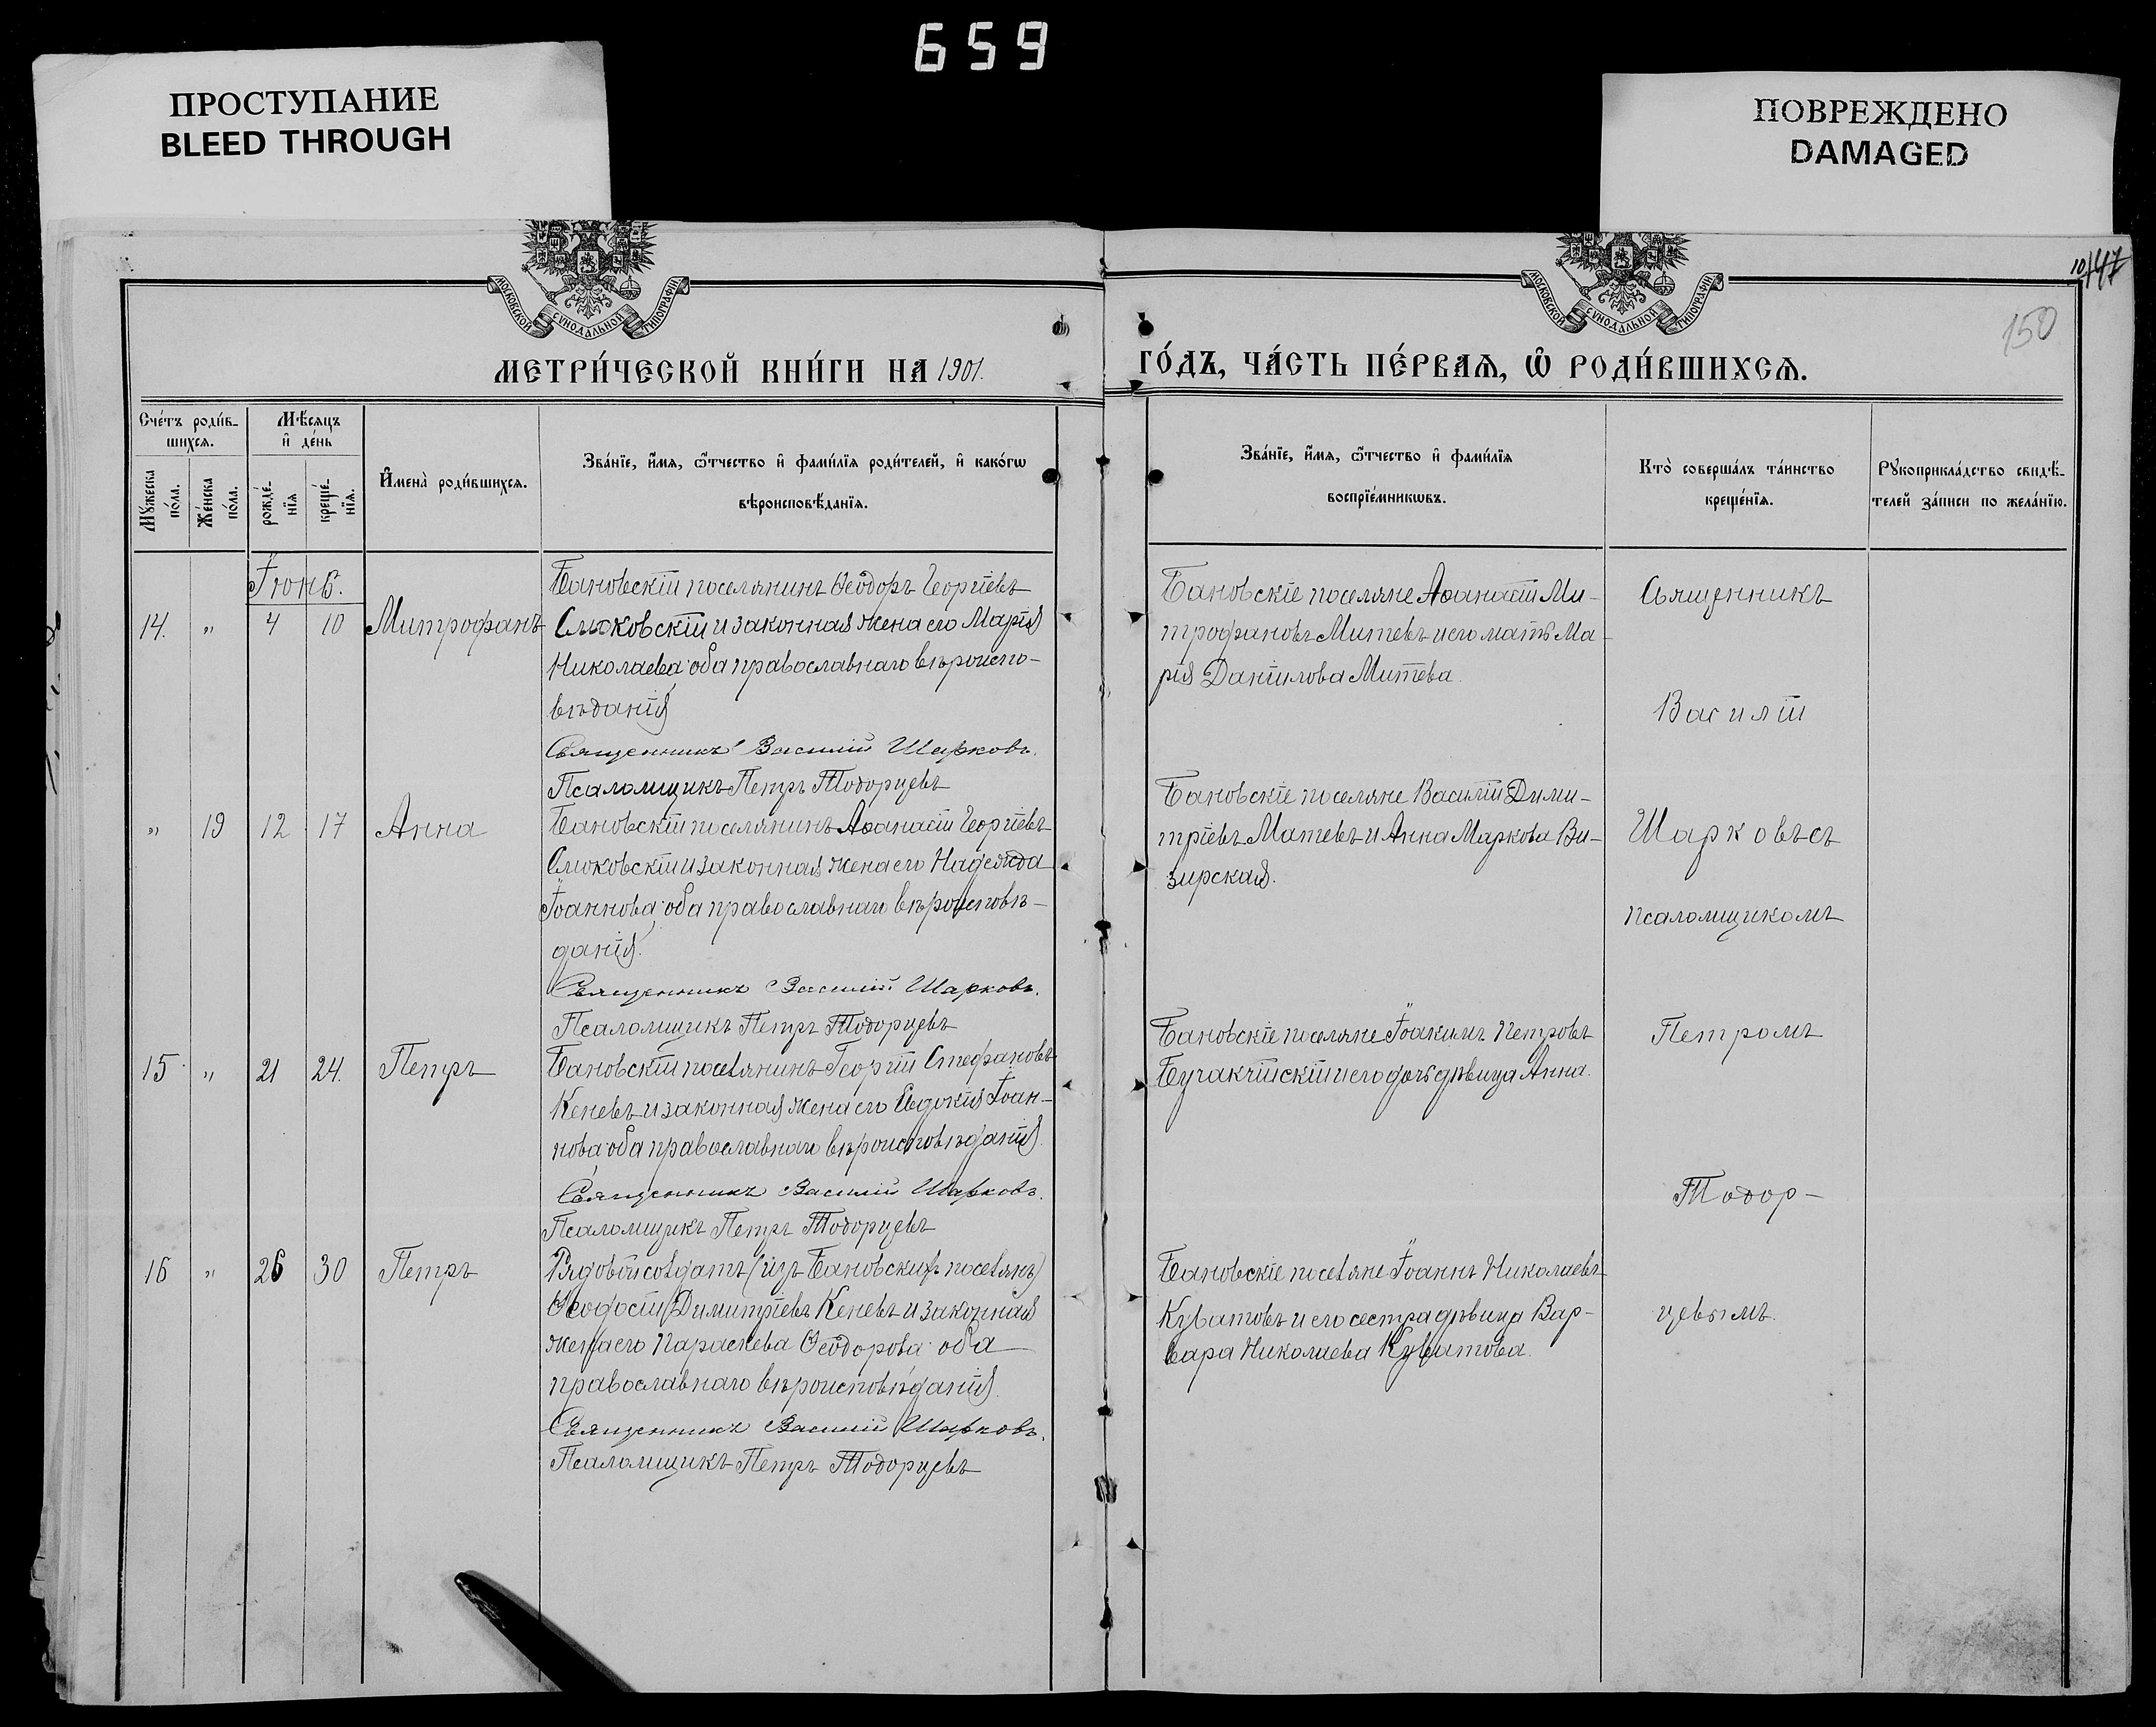 659
ПРОСТУПАНИЕ
BLEED THROUGH
ПОВРЕЖДЕНО
DAMAGED
МОСКОВСКОЙ СѴНОДАЛЬНОЙ ТИПОГРАФІИ
МОСКОВСКОЙ СѴНОДАЛЬНОЙ ТИПОГРАФІИ
147
150
МЕТРИ́ЧЕСКОЙ КНИ́ГИ НА 1901.
ГО́ДЪ, ЧА́СТЬ ПЕ́РВАѦ, Ѽ РОДИ́ВШИХСѦ.
Сче́тъ роди́в-
шихсѧ.
Мѣ́сѧцъ
и҆ де́нь
Мꙋ́жеска
по́ла.
Же́нска
по́ла.
рожде́-
нїѧ
креще́-
нїѧ.
И҆мена̀ роди́вшихсѧ.
Зва́нїе, и҆́мѧ, ѻ҆́тчество и҆ фами́лїѧ роди́телей, и҆ како́гѡ
вѣроисповѣ́данїѧ.
Зва́нїе, и҆́мѧ, ѻ҆́тчество и҆ фами́лїѧ
воспрїе́мникѡвъ.
Кто̀ соверша́лъ та́инство
креще́нїѧ.
Рꙋкоприкла́дство свидѣ́-
телей за́писи по жела́нїю.
Іюнь.
14. " 4 10 Митрофанъ
Бановскій поселянинъ Ѳеодоръ Георгіевъ
Слюковскій и законная жена его Марія
Николаева оба православнаго вѣроиспо-
вѣданія
Священникъ Василій Шарковъ.
Псаломщикъ Петръ Тодорцевъ
Бановскіе поселяне Аѳанасій Ми-
трофановъ Митевъ и его мать Ма-
рія Даніилова Митева.
Священникъ
Василій
" 19 12 17 Анна
Бановскій поселянинъ Аѳанасій Георгіевъ
Слюковскій и законная жена его Надежда
Іоаннова оба православнаго вѣроисповѣ-
данія.
Священникъ Василій Шарковъ.
Псаломщикъ Петръ Тодорцевъ
Бановскіе поселяне Василій Дими-
тріевъ Матевъ и Анна Маркова Ви-
зирская.
Шарковъ съ
псаломщикомъ
15 " 21 24. Петръ
Бановскій поселянинъ Георгій Стефановъ
Кеневъ и законная жена его Евдокія Іоан-
нова оба православнаго вѣроисповѣданія.
Священникъ Василій Шарковъ.
Псаломщикъ Петръ Тодорцевъ
Бановскіе поселяне Іоакимъ Петровъ
Бучакчійскій и его дочь дѣвица Анна.
Петромъ
Тодор-
16 " 26 30 Петръ
Рядовой солдатъ (изъ Бановскихъ поселянъ)
Ѳеодосій Димитріевъ Кеневъ и законная
жена его Параскева Ѳеодорова оба
православнаго вѣроисповѣданія.
Священникъ Василій Шарковъ.
Псаломщикъ Петръ Тодорцевъ
Бановскіе поселяне Іоаннъ Николаевъ
Куватовъ и его сестра дѣвица Вар-
вара Николаева Куватова.
цевымъ.